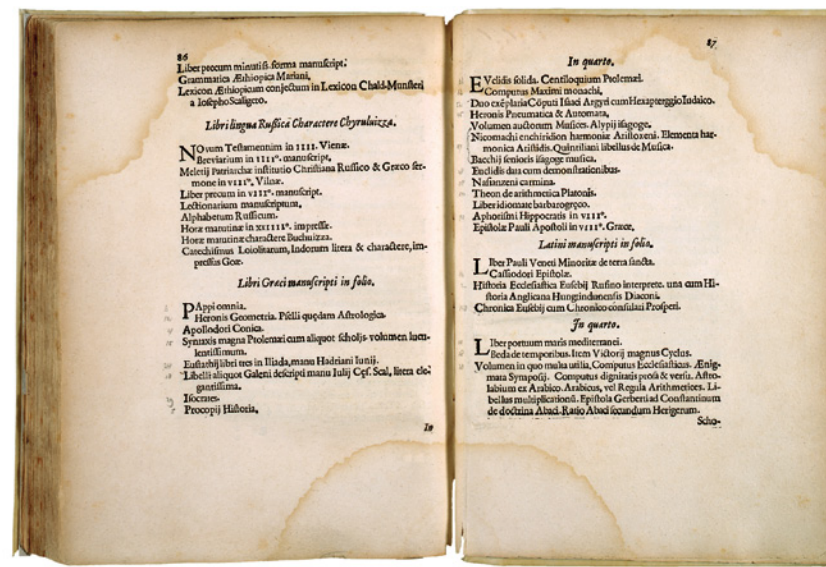 86
Liber precum minutiſſ. forma manuſcript.
Grammatica Æthiopica Mariani.
Lexicon Æthiopicum conjectum in Lexicon Chald-Munſteri
a Ioſepho Scaligero.
Libri lingua Ruſſica Charactere Chyruluizza.
NOvum Teſtamentum in IIII. Vienæ.
Breviarium in IIII°. manuſcript.
Meletij Patriarchæ inſtitutio Chriſtiana Ruſſico & Græco ſer-
mone in VIII°. Vilnæ.
Liber precum in VIII°. manuſcript.
Lectionarium manuſcriptum.
Alphabetum Ruſſicum.
Horæ matutinæ in XXIIII°. impreſſæ.
Horæ matutinæ charactere Buchuizza.
Catechiſmus Loiolitarum, Indorum litera & charactere, im-
preſſus Goæ.
Libri Græci manuſcripti in folio.
PAppi omnia.
Heronis Geometria. Pſelli quędam Aſtrologica.
Apollodori Conica.
Syntaxis magna Ptolemæi cum aliquot ſcholjs. volumen lucu-
lentiſſimum.
Euſtathij libri tres in Iliada, manu Hadriani Iunij.
Libelli aliquot Galeni deſcripti manu Iulij Cęſ. Scal, litera ele-
gantiſſima.
Iſocrates.
Procopij Hiſtoria.
In
87
In quarto.
EVclidis ſolida. Centiloquium Ptolemæi.
Computus Maximi monachi.
Duo exẽplaria Cõputi Iſaaci Argyri cum Hexapterygio Iudaico.
Heronis Pneumatica & Automata.
Volumen auctorum Muſices. Alypij iſagoge.
Nicomachi enchiridion harmoniæ Ariſtoxeni. Elementa har-
monica Ariſtidis. Quintiliani libellus de Muſica.
Bacchij ſenioris iſagoge muſica.
Euclidis data cum demonſtrationibus.
Nazianzeni carmina.
Theon de arithmetica Platonis.
Liber idiomate barbarogręco.
Aphoriſmi Hippocratis in VIII°.
Epiſtolæ Pauli Apoſtoli in VIII°. Græcæ.
Latini manuſcripti in folio.
LIber Pauli Veneti Minoritæ de terra ſancta.
Caſſiodori Epiſtolæ.
Hiſtoria Eccleſiaſtica Euſebij Rufino interprete. una cum Hi-
ſtoria Anglicana Hungtindunenſis Diaconi.
Chronica Euſebij cum Chronico conſulari Proſperi.
In quarto.
LIber portuum maris mediterranei.
Beda de temporibus. Item Victorij magnus Cyclus.
Volumen in quo multa utilia, Computus Eccleſiaſticus. Ænig-
mata Sympoſij. Computus dignitatis proſa & verſu. Aſtro-
labium ex Arabico. Arabicus, vel Regula Arithmetices. Li-
bellus multiplicationũ. Epiſtola Gerberti ad Conſtantinum
de doctrina Abaci. Ratio Abaci ſecundum Herigerum.
Scho-